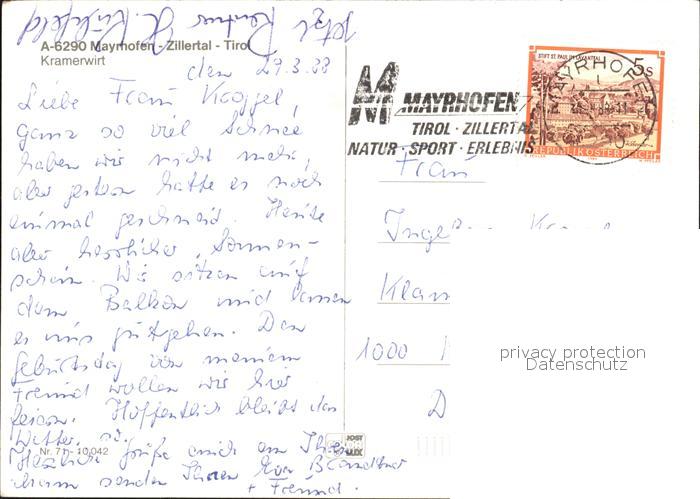 Jetzt Rentner
A-6290 Mayrhofen - Zillertal - Tirol
Kramerwirt
den 29.3.88
Liebe Frau
ganz so viel Schnee
haben wir nicht mehr,
aber gestern hatte es noch
einmal geschneit. Heute
aber herrlicher Sonnen-
schein. Wir sitzen auf
dem Balkon und lassen
es uns gutgehen. Den
Geburtstag von meinem
Freund wollen wir hier
feiern. Hoffentlich bleibt das
Wetter so.
Herzliche Grüße auch an Ihren
senden Ihnen
+ Freund.
Nr. 71 - 10.042
MAYRHOFEN
TIROL · ZILLERTAL
NATUR · SPORT · ERLEBNIS
STIFT ST. PAUL IM LAVANTTAL
5 S
MAYRHOFEN
REPUBLIK ÖSTERREICH
Frau
Klam
1000
D
privacy protection
Datenschutz